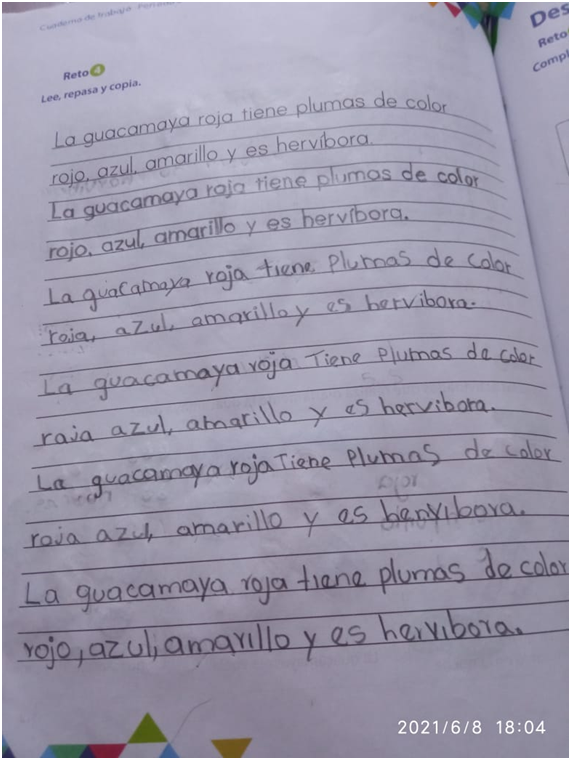 Cuaderno de trabajo
Des
Reto
Reto 4
Compl
Lee, repasa y copia.
La guacamaya roja tiene plumas de color
rojo, azul, amarillo y es hervíbora.
La guacamaya roja tiene plumas de color
rojo, azul, amarillo y es hervíbora.
La guacamaya roja tiene Plumas de color
roja, azul, amarillo y es hervibora.
La guacamaya roja Tiene Plumas de color
raja azul, amarillo y es hervibora.
La guacamaya roja Tiene Plumas de color
roja azul, amarillo y es hervibora.
La guacamaya roja tiene plumas de color
rojo, azul, amarillo y es hervibora.
2021/6/8 18:04